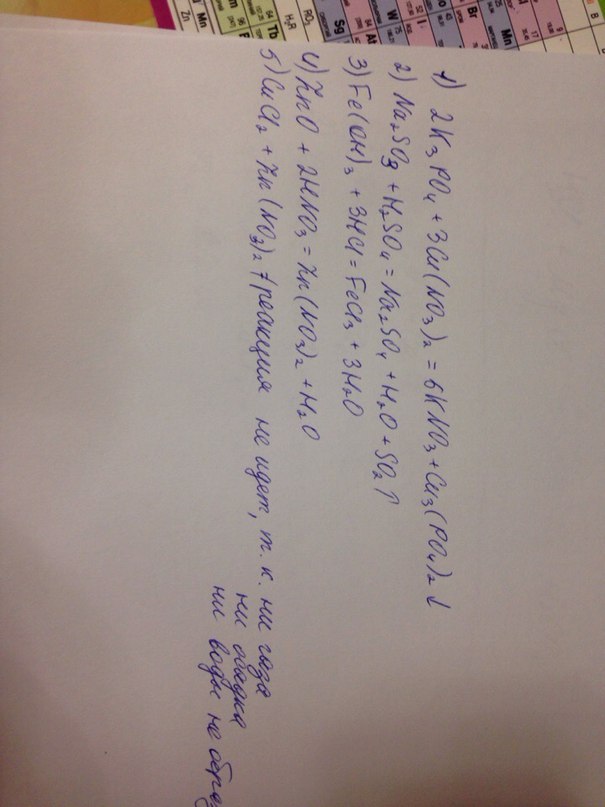 1) 2K₃PO₄ + 3Cu(NO₃)₂ = 6KNO₃ + Cu₃(PO₄)₂ ↓
2) Na₂SO₃ + H₂SO₄ = Na₂SO₄ + H₂O + SO₂ ↑
3) Fe(OH)₃ + 3HCl = FeCl₃ + 3H₂O
4) ZnO + 2HNO₃ = Zn(NO₃)₂ + H₂O
5) CuCl₂ + Zn(NO₃)₂ ≠ реакция не идет, т. к. ни газа
ни осадка
ни воды не обра